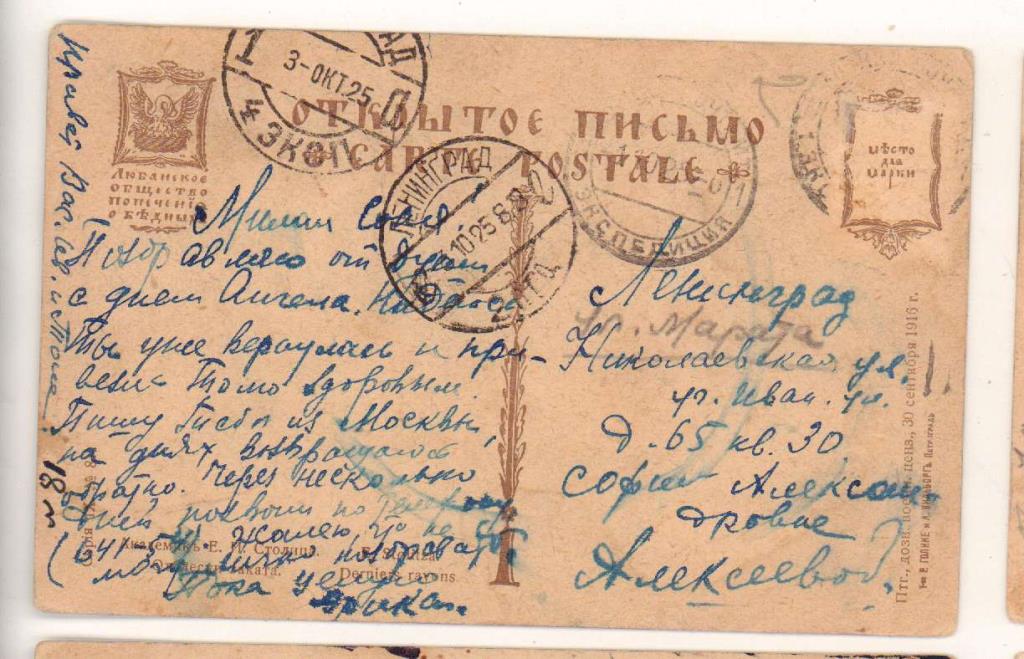 ОТКРЫТОЕ ПИСЬМО
CARTE POSTALE
Любанское
общество
попеченiя
о бѣдныхъ
мѣсто
для
марки
3-ОКТ.25
4 ЭКСП.
ЛЕНИНГРАД
10 25 8
ЭКСПЕДИЦИЯ
Милая Соня
Поздравляю от души
с днем Ангела. Надеюсь
Ты уже вернулась и при-
везла Тому здоровым.
Пишу Тебе из Москвы,
на днях возвращаюсь
обратно. Через несколько
дней позвоню по телефону
Жалею, что не
Пока целую
Привет
Ленинград
ул. Марата
Николаевская ул.
уг. Иван. ул.
д. 65 кв. 30.
Софии Алексан-
дровне
Алексеевой
Академикъ Е. И. Столица.
E. Stolitza.
Derniers rayons
Птг., дозв. воен. ценз., 30 сентября 1916 г.
Р. ГОЛИКЕ и А. ВИЛЬБОРГЪ. ПЕТРОГРАДЪ